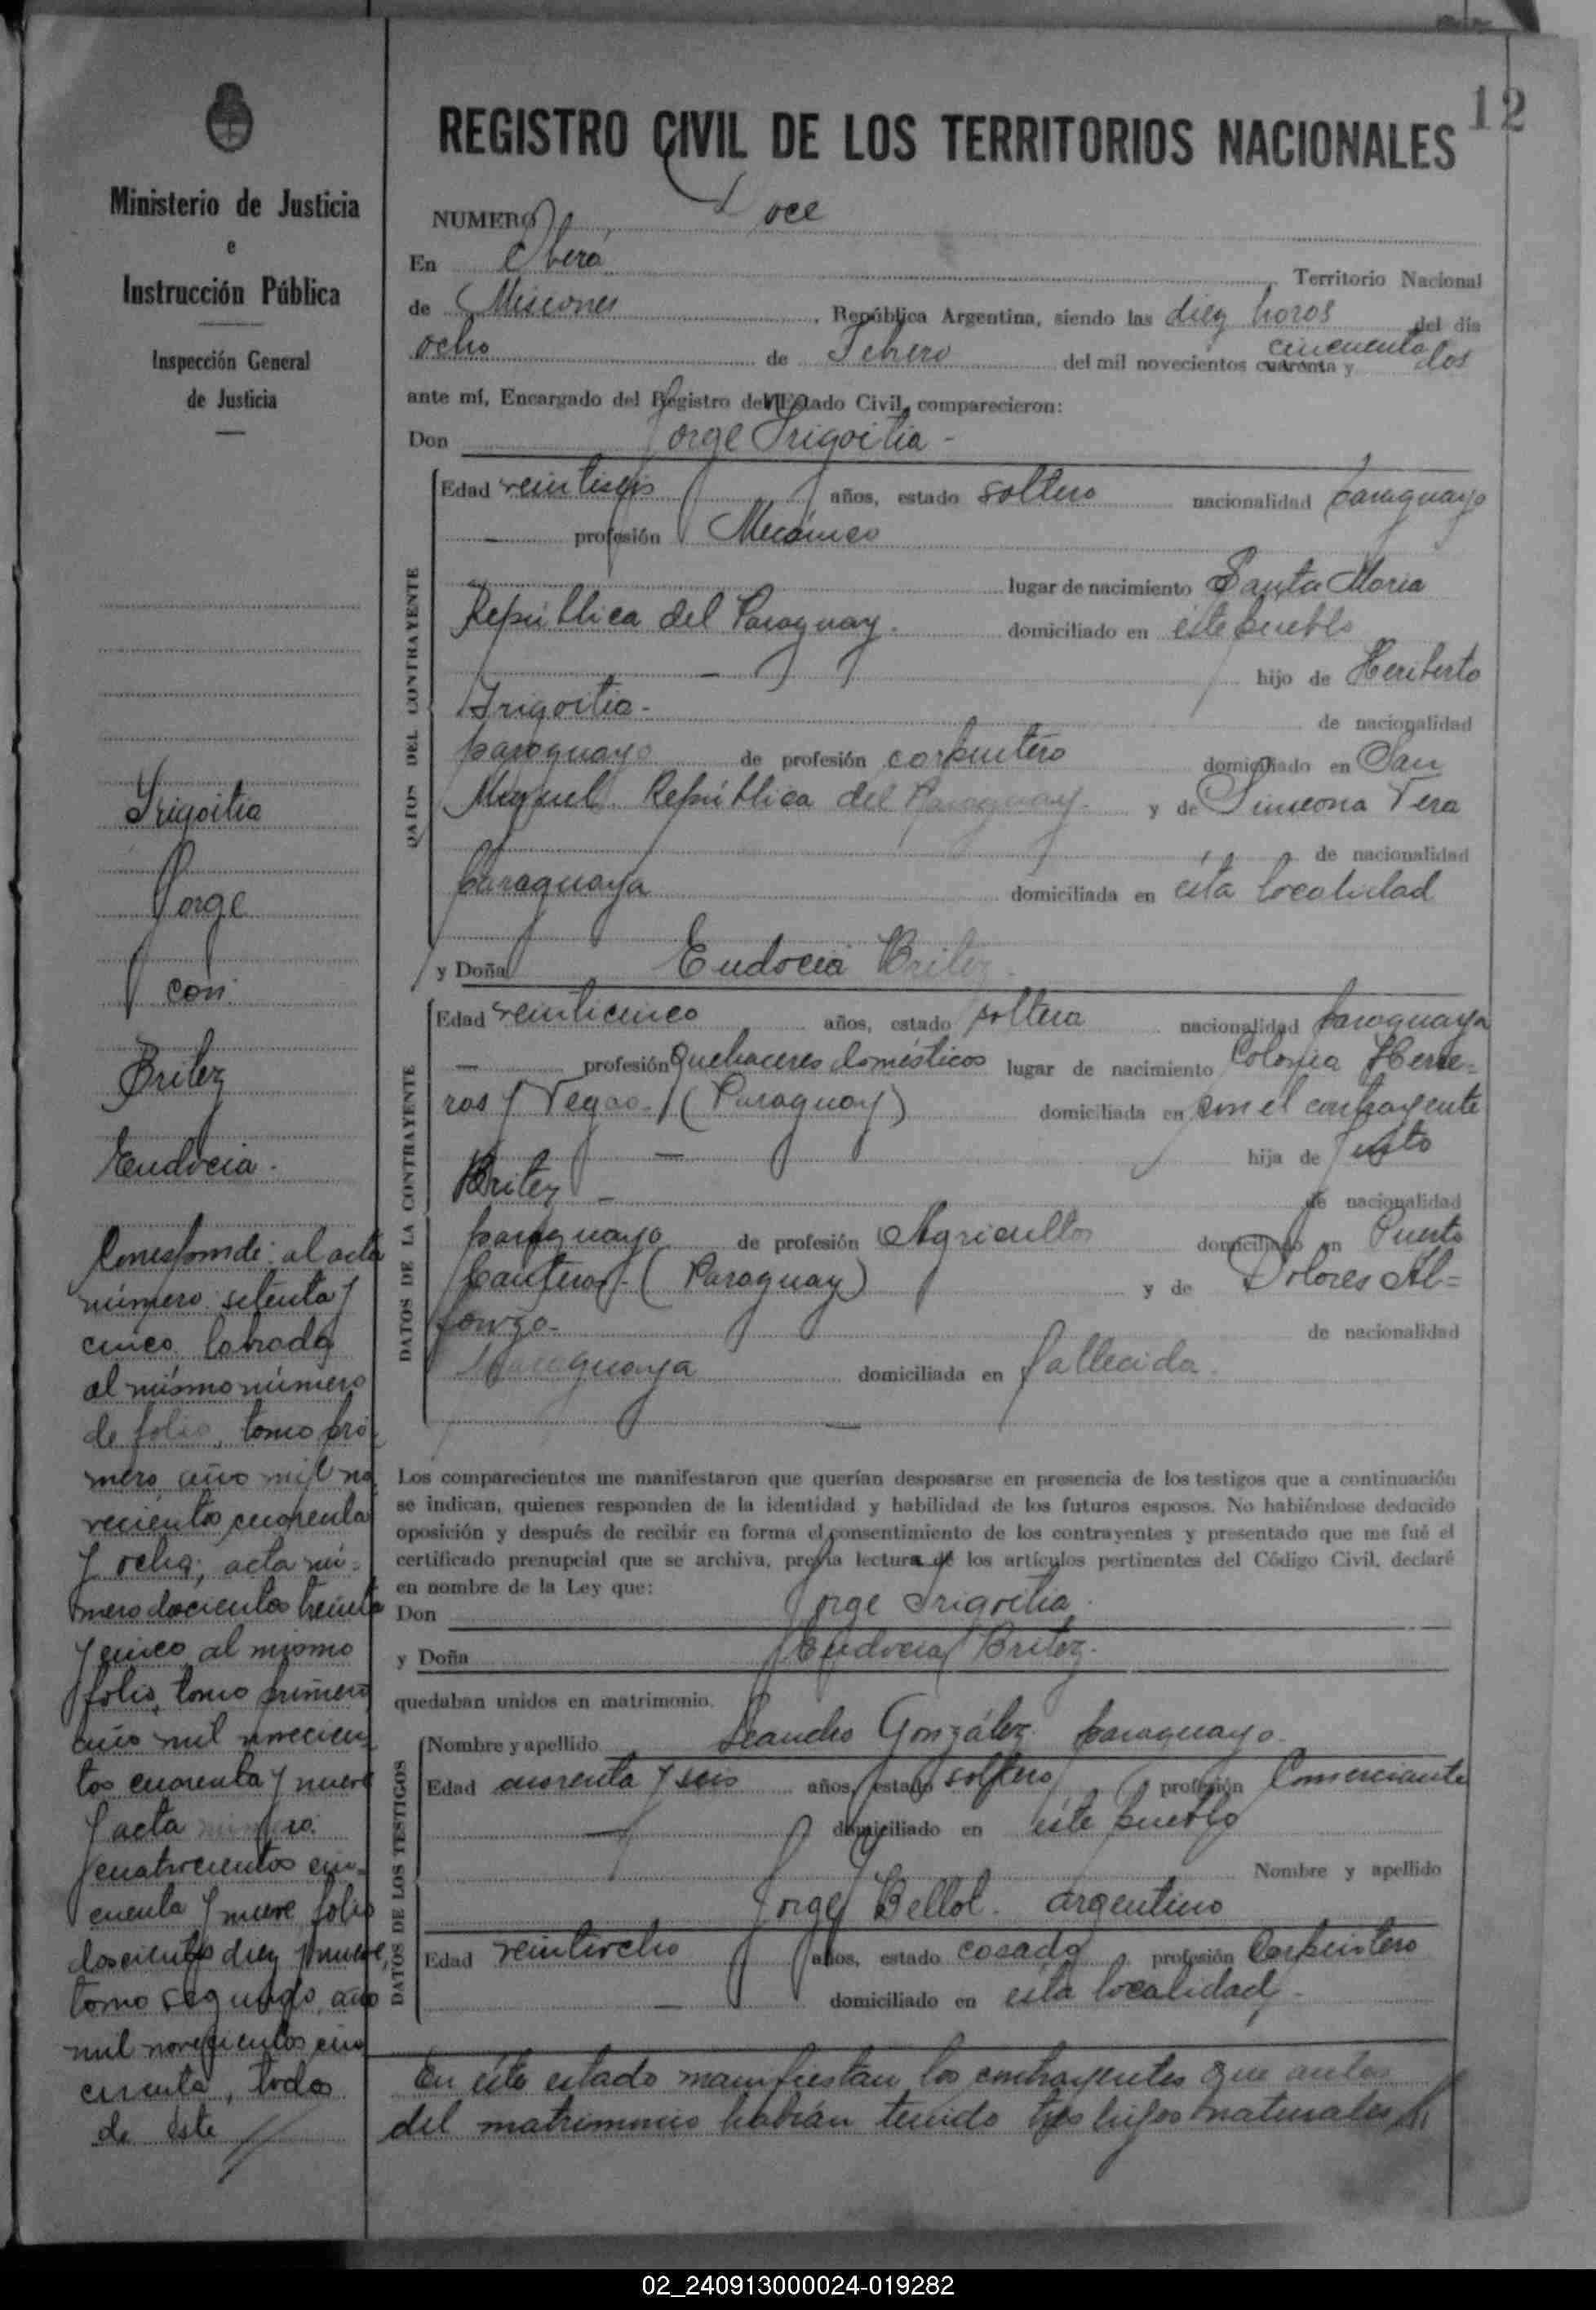 12
Ministerio de Justicia
e
Instrucción Pública
Inspección General
de Justicia
REGISTRO CIVIL DE LOS TERRITORIOS NACIONALES
NUMERO Doce
En Oberá Territorio Nacional
de Misiones, República Argentina, siendo las diez horas del día
ocho de Febrero del mil novecientos cuarenta y cincuenta dos
ante mí, Encargado del Registro del Estado Civil, comparecieron:
Don Jorge Irigoitia -
DATOS DEL CONTRAYENTE
Edad veintiseis años, estado soltero nacionalidad paraguayo
profesión Mecánico
lugar de nacimiento Santa Maria
República del Paraguay. domiciliado en éste pueblo
hijo de Heriberto
Irigoitia- de nacionalidad
paraguayo de profesión carpintero domiciliado en San
Miguel. República del Paraguay. y de Simeona Vera
de nacionalidad
paraguaya domiciliada en ésta localidad
y Doña Eudocia Britez.
DATOS DE LA CONTRAYENTE
Edad veinticinco años, estado soltera nacionalidad paraguaya
profesión Quehaceres domésticos lugar de nacimiento Colonia Herre=
ros y Vegas. (Paraguay) domiciliada en con el contrayente
hija de Justo
Britez - de nacionalidad
paraguayo de profesión Agricultor domiciliado en Puerto
Canteras - (Paraguay) y de Dolores Al=
fonzo- de nacionalidad
Paraguaya domiciliada en fallecida.
Los comparecientes me manifestaron que querían desposarse en presencia de los testigos que a continuación
se indican, quienes responden de la identidad y habilidad de los futuros esposos. No habiéndose deducido
oposición y después de recibir en forma el consentimiento de los contrayentes y presentado que me fué el
certificado prenupcial que se archiva, previa lectura de los artículos pertinentes del Código Civil, declaré
en nombre de la Ley que:
Don Jorge Irigoitia.
y Doña Eudocia Britez.
quedaban unidos en matrimonio.
DATOS DE LOS TESTIGOS
Nombre y apellido Leandro González. paraguayo.
Edad cuarenta y seis años, estado soltero profesión Comerciante
domiciliado en éste pueblo
Nombre y apellido
Jorge Bellol. argentino
Edad veintiocho años, estado casado profesión Carpintero
domiciliado en ésta localidad.
En éste estado manifiestan los contrayentes que antes
del matrimonio habían tenido tres hijos naturales
Irigoitia
Jorge
con
Britez
Eudocia.
Corresponde: al acta
número setenta y
cinco, labrada
al mismo número
de folio, tomo pri
mero año mil no
vecientos cuarenta
y ocho; acta nú=
mero docientos treinta
y cinco al mismo
folio, tomo primero
año mil novecien
tos cuarenta y nueve
y acta número.
cuatrocientos cin=
cuenta y nueve folio
doscientos diez y nueve,
tomo segundo, año
mil novecientos cin
cuenta, todos
de éste
02_240913000024-019282